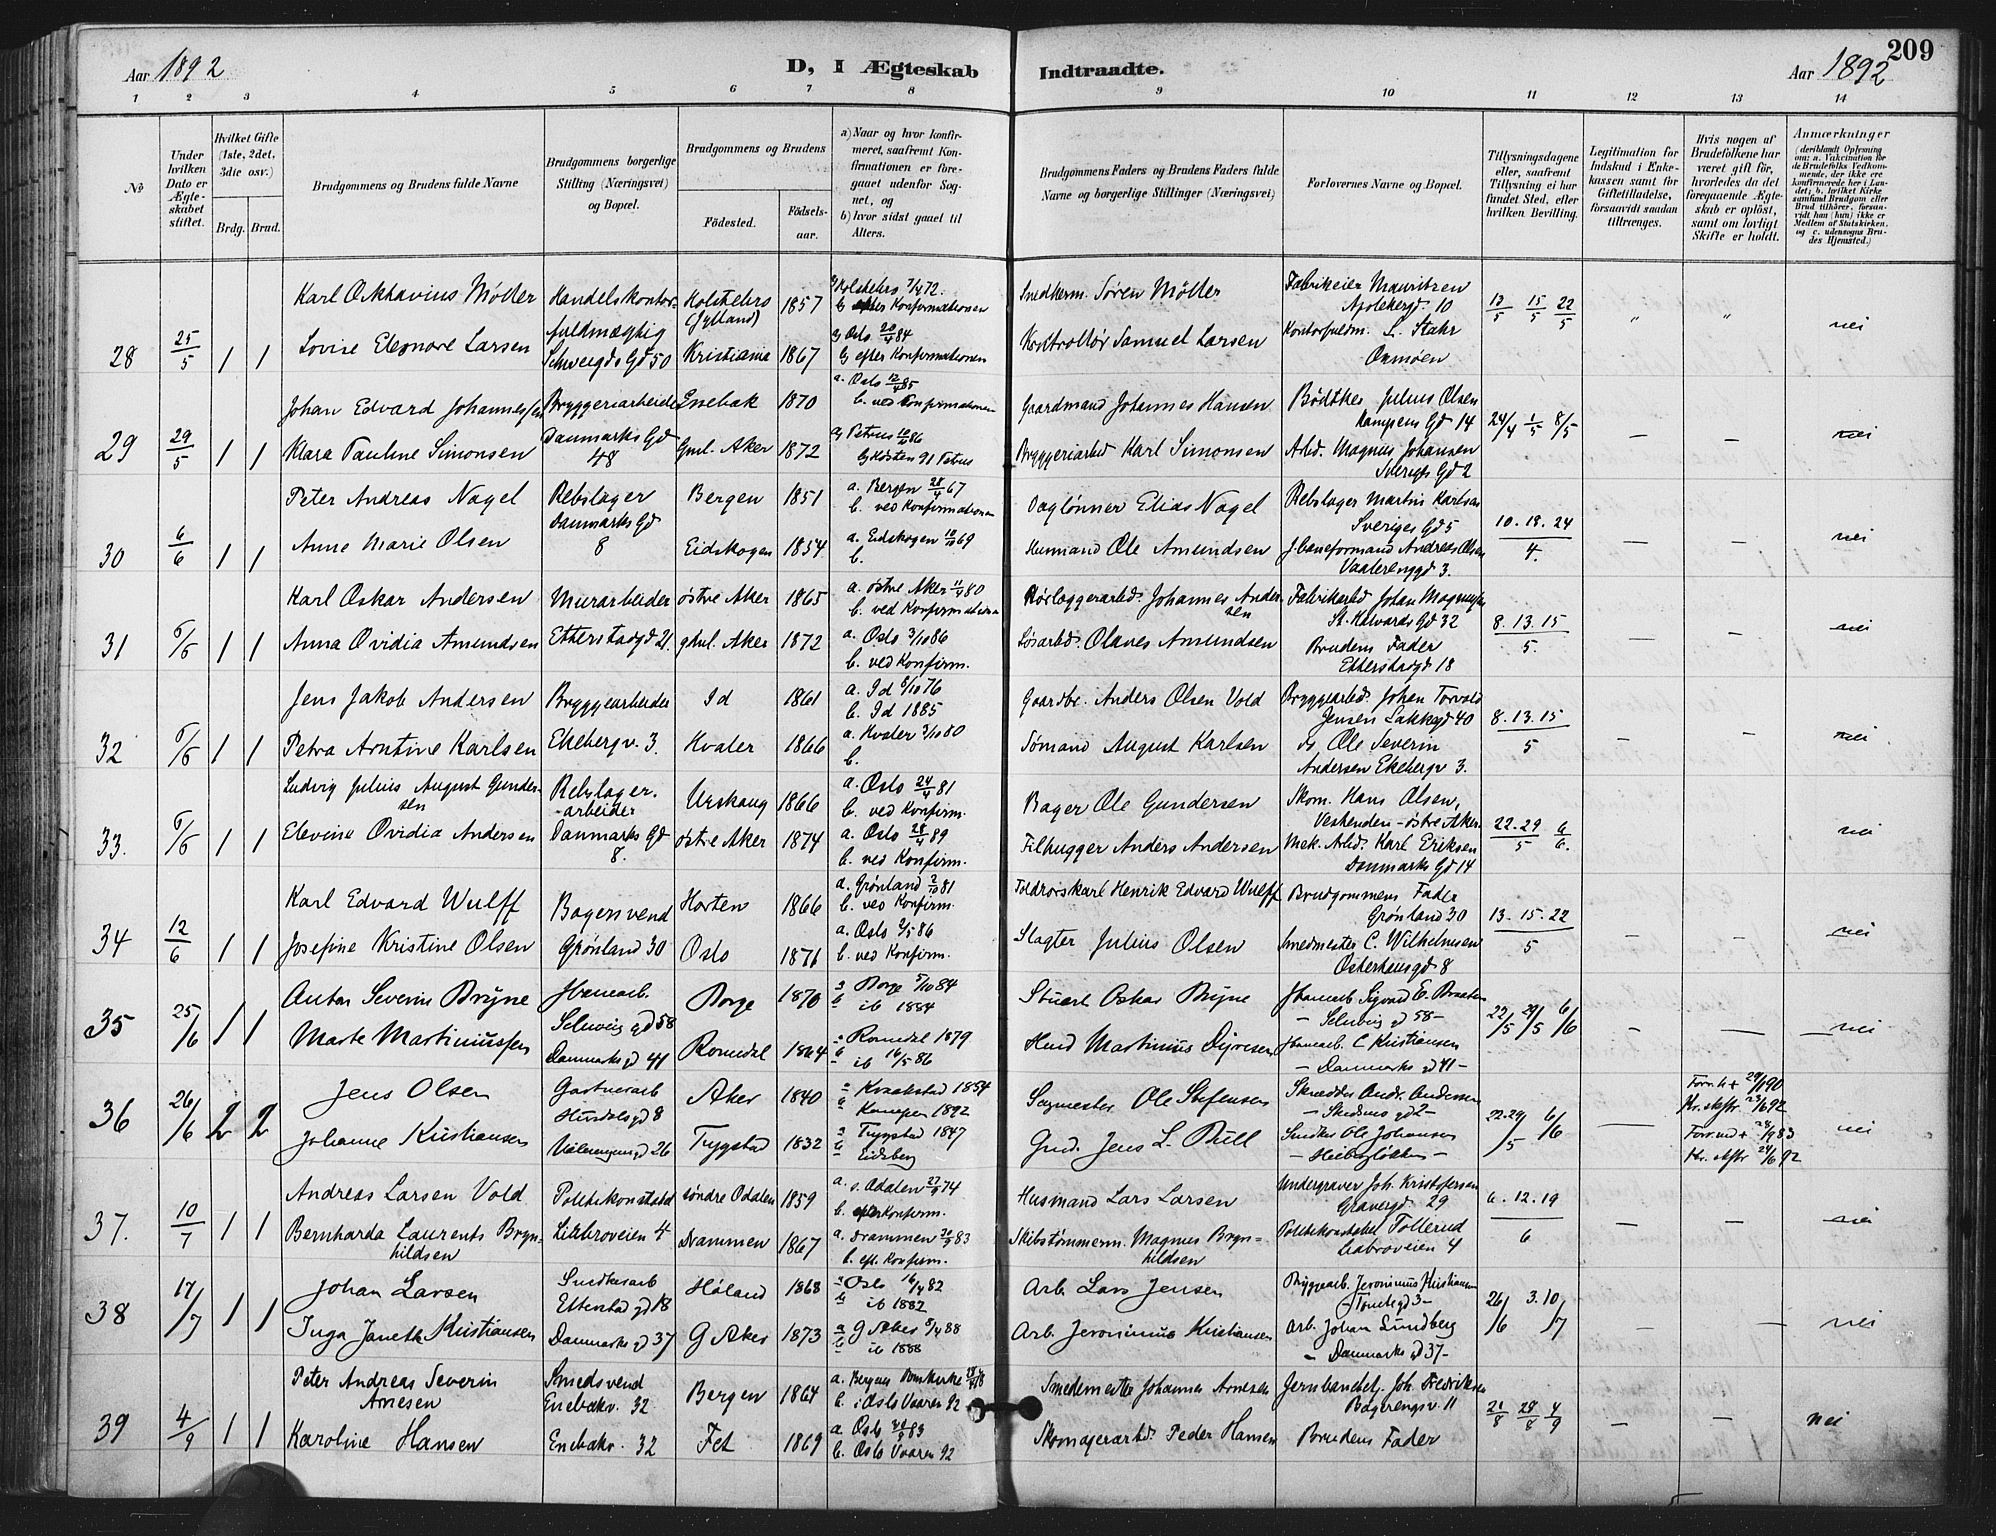 209
Aar 1892
D, I Ægteskab Indtraadte.
Aar 1892
1 2 3 4 5 6 7 8 9 10 11 12 13 14
No
Under hvilken Dato er Ægteskabet stiftet.
Hvilket Gifte (1ste, 2det, 3die osv.)
Brdg. Brud.
Brudgommens og Brudens fulde Navne
Brudgommens borgerlige Stilling (Næringsvei) og Bopæl.
Brudgommens og Brudens
Fødested.
Fødselsaar.
a) Naar og hvor konfirmeret, saafremt Konfirmationen er foregaaet udenfor Sognet, og
b) hvor sidst gaaet til Alters.
Brudgommens Faders og Brudens Faders fulde Navne og borgerlige Stillinger (Næringsvei)
Forlovernes Navne og Bopæl.
Tillysningsdagene eller, saafremt Tillysning ei har fundet Sted, efter hvilken Bevilling.
Legitimation for Indskud i Enkekassen samt for Giftetilladelse, forsaavidt saadan tiltrænges.
Hvis nogen af Brudefolkene har været gift, hvorledes da det foregaaende Ægteskab er opløst, samt om lovligt Skifte er holdt.
Anmærkninger
28 25/5 1 1
Karl Okthavius Møller Handelskontor- Holstebro 1857 Holstebro 7/4 72. Smedkerm. Sören Möller Fabrikeier Mauritzen
(Jylland) b efter Konfirmationen Apotekergd. 10 13/5 15/5 22/5 " " nei
fuldmægtig a) Oslo 20/4 84 Kontorfuldm. L. Stahr
Lovise Eleonore Larsen Schweigds Gd 50 Kristiania 1867 b) efter Konfirmationen Kontrollør Samuel Larsen
29 29/5 1 1
Johan Edvard Johannessen Bryggeriarbeider Enebak 1870 a. Oslo 12/4 85 Gaardmand Johannes Hansen Bødtker Julius Olsen
b. ved Konfirmationen Kampens Gd 14 24/4 1/5 8/5 — — nei
Klara Pauline Simonsen Danmarks Gd 48 Gml. Aker 1872 a) Petrus 10/10 86 Bryggeriarbd Karl Simonsen Arbd. Magnus Johansen
b) Høsten 91 Petrus Sverigs Gd 2
30 6/6 1 1
Peter Andreas Nagel Rebslager Bergen 1851 a. Bergen 28/4 67 Daglønner Elias Nagel Rebslager Martin Karlsen
Danmarks Gd 8 b. ved Konfirmationen Sveriges Gd 5 10. 18. 24/4. — — nei
Anne Marie Olsen Eidskogen 1854 a. Eidskogen 10/10 69 Husmand Ole Amundsen Jbaneformand Andreas Olsen
b. Vaalerenggd 3.
31 6/6 1 1
Karl Oskar Andersen Murarbeider østre Aker 1865 a. østre Aker 11/4 80 Rørlæggerarbd. Johannes Andersen Fabrikarbd Johan Magnussen
b. ved Konfirmationen St. Halvards Gd 32 8. 13. 15/5. — — nei
Anna Ovidia Amundsen Etterstadgd 21. gml. Aker 1872 a. Oslo 3/10 86 Løsarbd. Olaves Amundsen Brudens Fader
b. ved Konfirm. Etterstadgd 18
32 6/6 1 1
Jens Jakob Andersen Bryggearbeider Id 1861 a. Id 8/10 76 Gaardbr. Anders Olsen Vold Bryggearbd. Johan Torvald
b. Id 1885 Jensen Lakkegd 40 8. 13. 15/5 — — nei
Petra Arntine Karlsen Ekebergv. 3. Hvaler 1866 a. Hvaler 3/10 80 Sømand August Karlsen ds. Ole Severin
b. Andersen Ekebergv 3.
33. 6/6 1 1
Ludvig Julius August Gundersen Rebslager-arbeider Urskaug 1866 a. Oslo 24/4 81 Bager Ole Gundersen Skom. Hans Olsen,
b. ved Konfirm. østre Aker. 22. 29/5 6/6. nei
Elevine Ovidia Andersen Danmarks Gd 8. østre Aker 1874 a. Oslo 28/4 89 Filhugger Anders Andersen Mek. Arbd. Karl Eriksen
b. ved Konfirm. Danmarks Gd 14
34 12/6 1 1
Karl Edvard Wulff Bagersvend Horten 1866 a. Grønland 2/10 81 Toldroiskarl Henrik Edvard Wulff Brudgommens Fader
b. ved Konfirm. Grønland 30 13. 15. 22/5 — — nei
Josefine Kristine Olsen Grønland 30 Oslo 1871 a. Oslo 2/5 86 Slagter Julius Olsen Smedmester C. Wilhelmsen
b. ved Konfirm. Osterhausgd 8
35 25/6 1 1
Anton Severin Bryne Jbanearb. Borge 1870 a Borge 5/10 84 Stuert Oskar Bryne Jbanearb Sigvard E. Braaten
Schweig gd 58 b ib 1884 — Schweig gd 58 — 22/5 29/5 6/6 — — nei
Marte Martiniussen Danmarks gd 41 Romedal 1864 a Romedal 1879 Husmd Martinius Dyresen Jbanearb. C Kristiansen
b ib 16/5 86 — Danmarks gd 41 —
36 26/6 2 2
Jens Olsen Gartnerarb Aker 1840 a Kraakstad 1854 Sagmester Ole Stefensen Skrædder Andr. Andersen Forr. h + 29/1 90
Hurdalsgd 8 b Kampen 1892 22. 29/5 6/6 — Hr. skftr 23/6 92 nei
Johanne Kristiansen Vålerengengd 26 Trygstad 1832 a Trygstad 1847 Gmd. Jens L. Bull Snedker Ole Johansen Forr. md + 28/9 83
b Eidsberg Hr. skftr 24/6 92
37. 10/7 1 1
Andreas Larsen Vold Politikonstabel søndre Odalen 1859 a. s. Odalen 27/9 74 Husmand Lars Larsen Undergraver Joh. Kristofersen
b. efter Konfirm. Gravergd. 29 6. 12. 19/6 — — nei
Bernharda Laurents Brynhildsen Liabroveien 4 Drammen 1867 a. Drammen 30/9 83 Skibstømmerm. Magnus Brynhildsen Politikonstabel Tollerud
b. eft. Konfirm. Liabroveien 4
38 17/7 1 1
Johan Larsen Snedkerarb Høland 1868 a Oslo 16/4 82 Arb. Lars Jensen Bryggearb. Jeronimus Kristiansen
Etterstad gd 18 b ib 1882 — Tomtegd 3 — 26/6 3. 10/7 — — nei
Inga Janette Kristiansen Danmarks gd 37 G Aker 1873 a g Aker 8/4 88 Arb. Jeronimus Kristiansen Arb. Johan Lundberg
b ib 1888 — Danmarks gd 37 —
39 4/9 1 1
Peter Andreas Severin Arnesen Smedsvend Bergen 1864 a. Bergens Domkirke Smedemester Johannes Arnesen Jernbanebetj. Joh. Fredriksen
Enebakv. 32 b. i Oslo Vaaren 92 11 21/8 28/8 4/9 — — nei
Karoline Hansen Enebakv. 32 Fet 1869 a Oslo 83 Skomagerarbd. Peder Hansen Brudens Fader
b. Oslo Vaaren 92